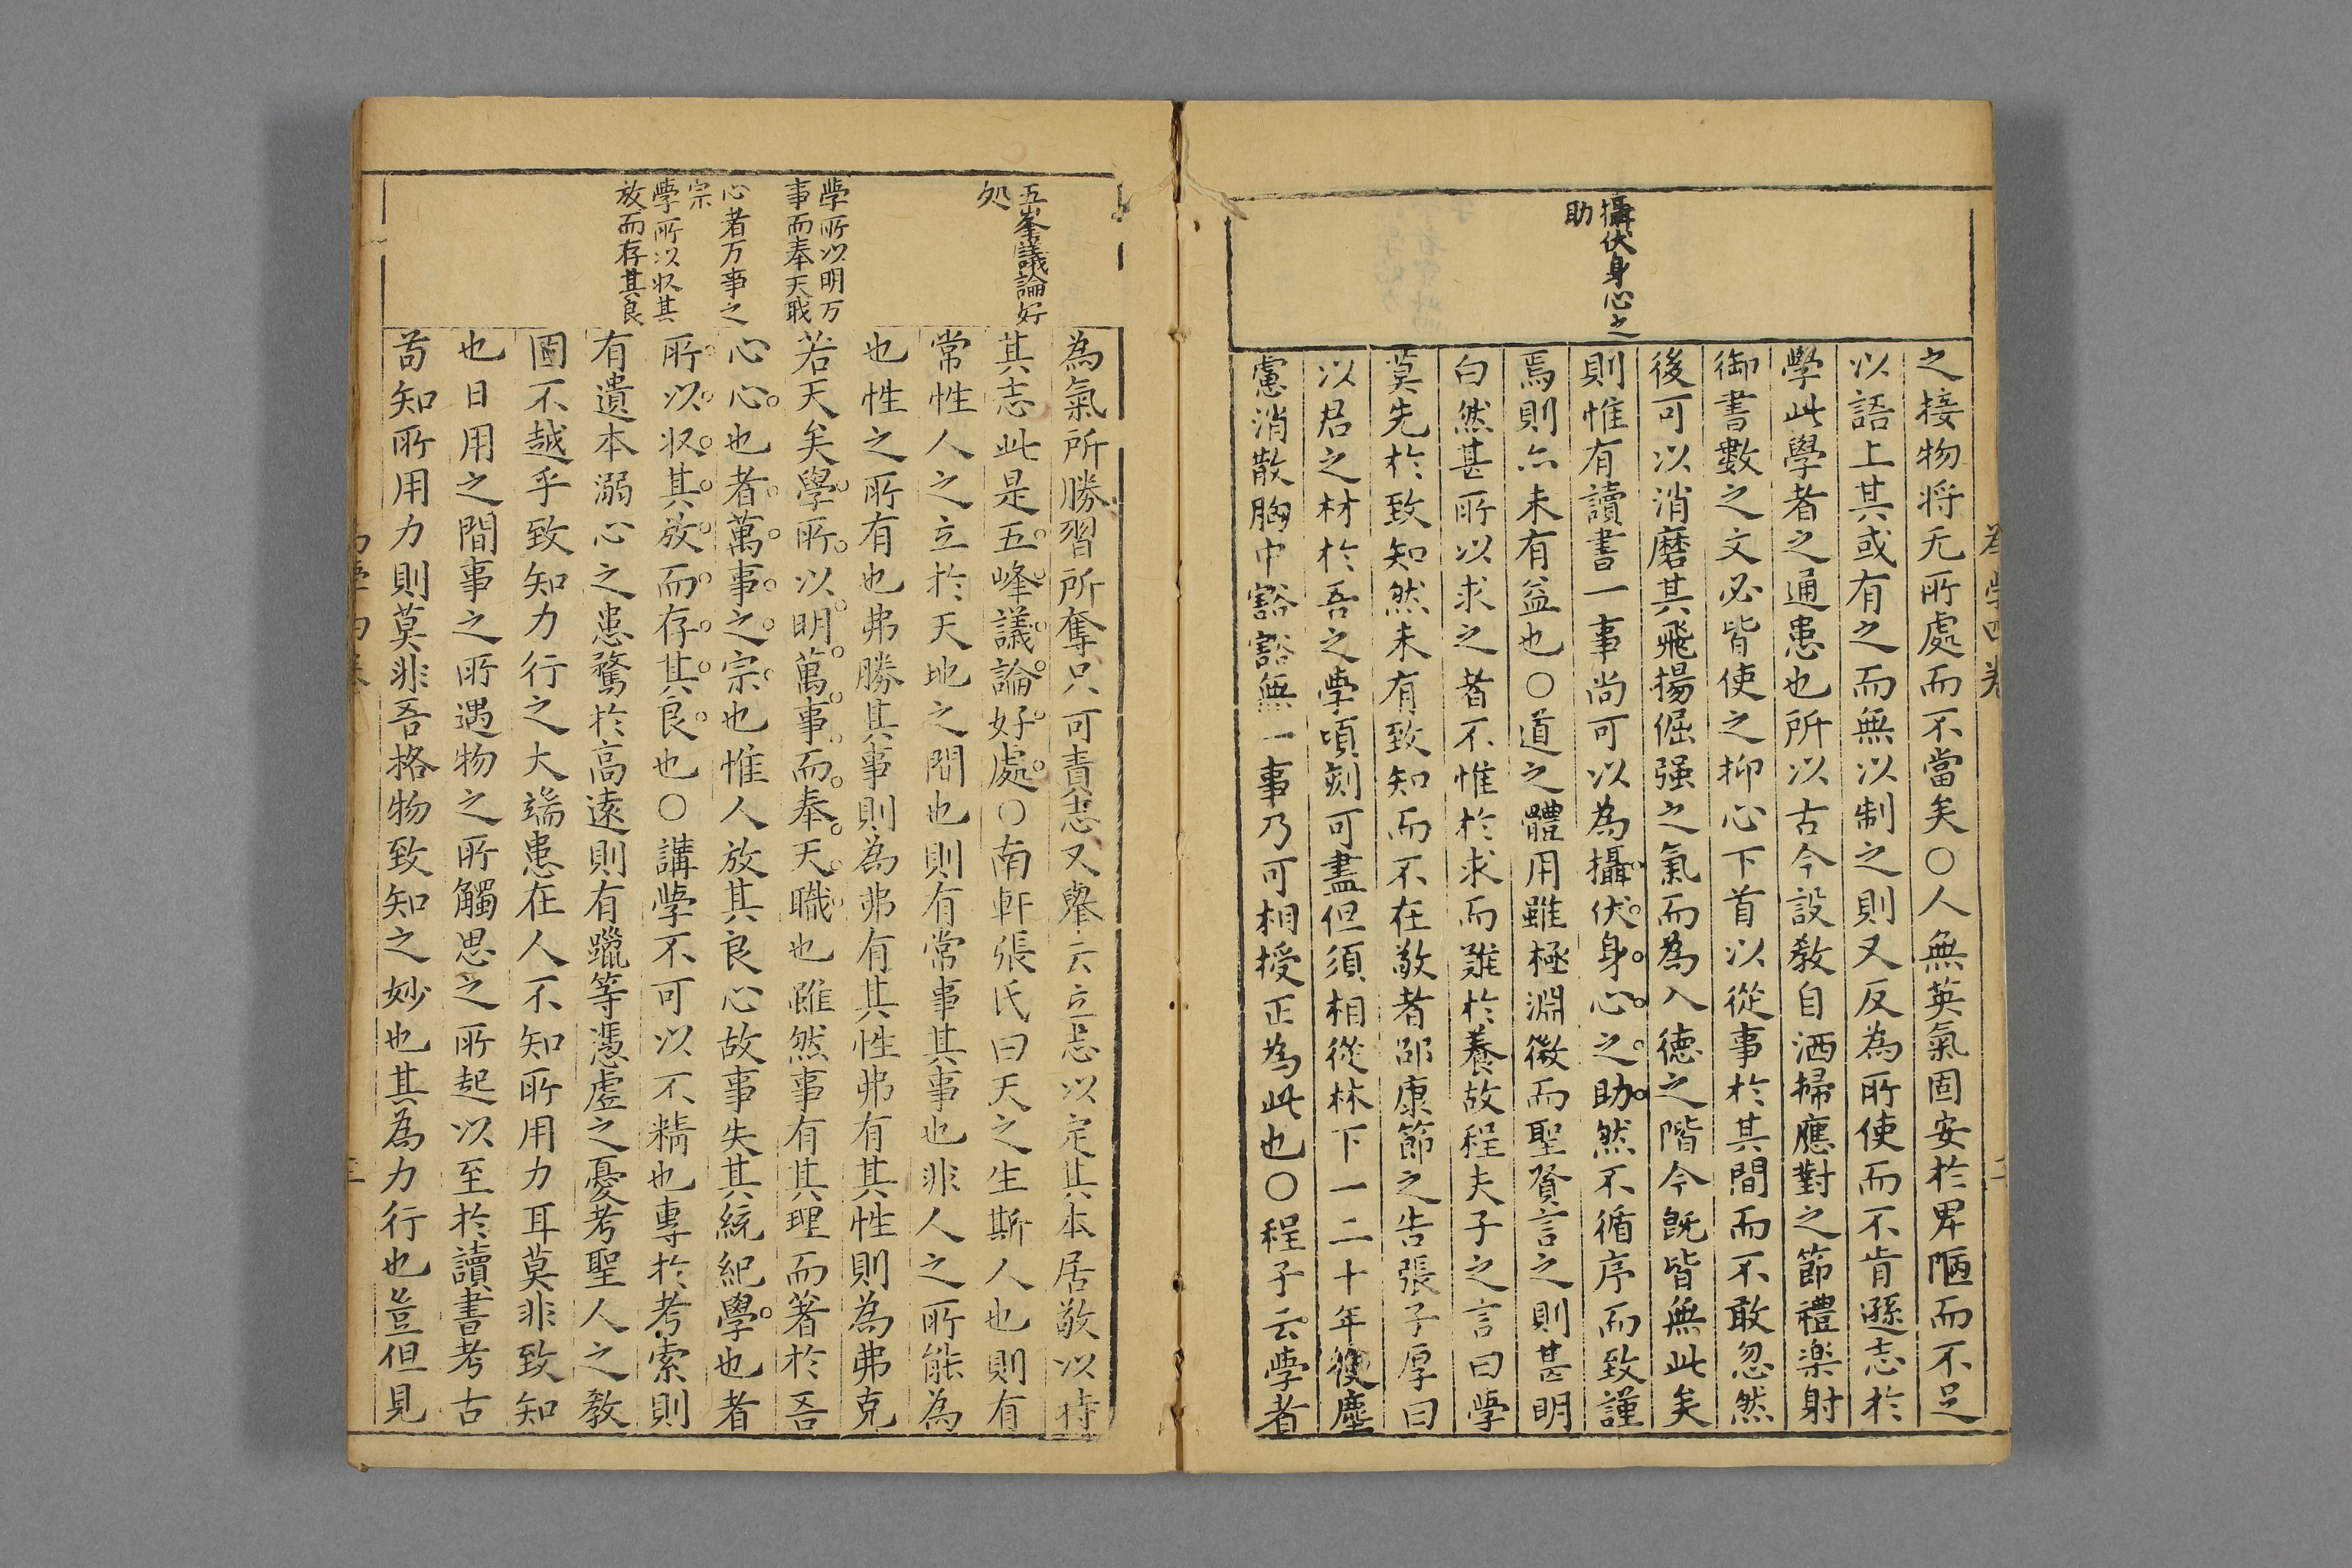 攝伏身心之
助
之接物将无所處而不當矣○人無英氣固安於卑陋而不足
以語上其或有之而無以制之則又反為所使而不肯遜志於
學此學者之通患也所以古今設教自洒掃應對之節禮楽射
御書數之文必皆使之抑心下首以從事於其間而不敢忽然
後可以消磨其飛揚倔强之氣而為入德之階今既皆無此矣
則惟有讀書一事尚可以為攝伏身心之助然不循序而致謹
焉則亦未有益也○道之體用雖極淵微而聖賢言之則甚明
白然甚所以求之者不惟於求而難於養故程夫子之言曰學
莫先於致知然未有致知而不在敬者邵康節之告張子厚曰
以君之材於吾之學頃刻可盡但須相從林下一二十年使塵
慮消散胸中豁豁無一事乃可相授正為此也○程子云學者
五峯議論好
処
學所以明万
事而奉天职
心者万事之
宗
學所以收其
放而存其良
為氣所勝習所奪只可責志又舉云立志以定其本居敬以持
其志此是五峰議論好處○南軒張氏曰天之生斯人也則有
常性人之立於天地之間也則有常事其事也非人之所能為
也性之所有也弗勝其事則為弗有其性弗有其性則為弗克
若天矣學所以明萬事而奉天職也雖然事有其理而著於吾
心心也者萬事之宗也惟人放其良心故事失其統紀學也者
所以収其放而存其良也○講學不可以不精也專於考索則
有遺本溺心之患騖於高遠則有躐等憑虛之憂考聖人之教
固不越乎致知力行之大端患在人不知所用力耳莫非致知
也日用之間事之所遇物之所觸思之所起以至於讀書考古
苟知所用力則莫非吾格物致知之妙也其為力行也豈但見